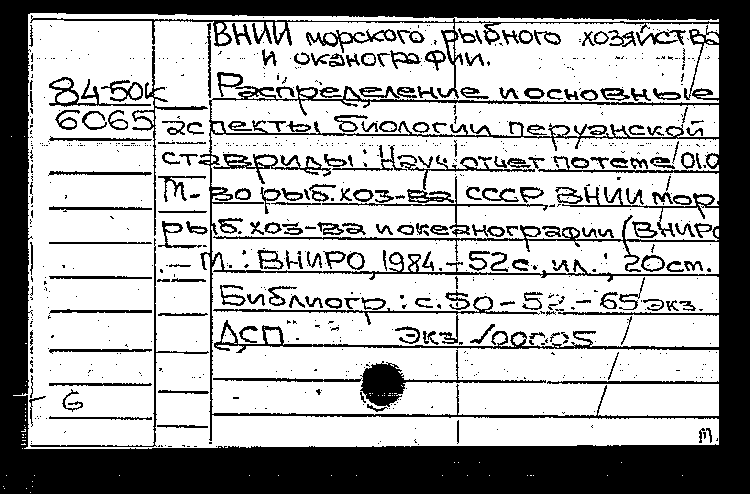 ВНИИ морского рыбного хозяйства
и оканографии.
84-50к
6065
Распределение и основные
аспекты биологии перуанской
ставриды: Науч. отчет по теме 01.0
М-во рыб. хоз-ва СССР, ВНИИ мор.
рыб. хоз-ва и океанографии (ВНИРО
.— М.: ВНИРО, 1984.–52с., ил.; 20см.
Библиогр.: с.50–52.–65экз.
ДСП Экз. √00005
6
м